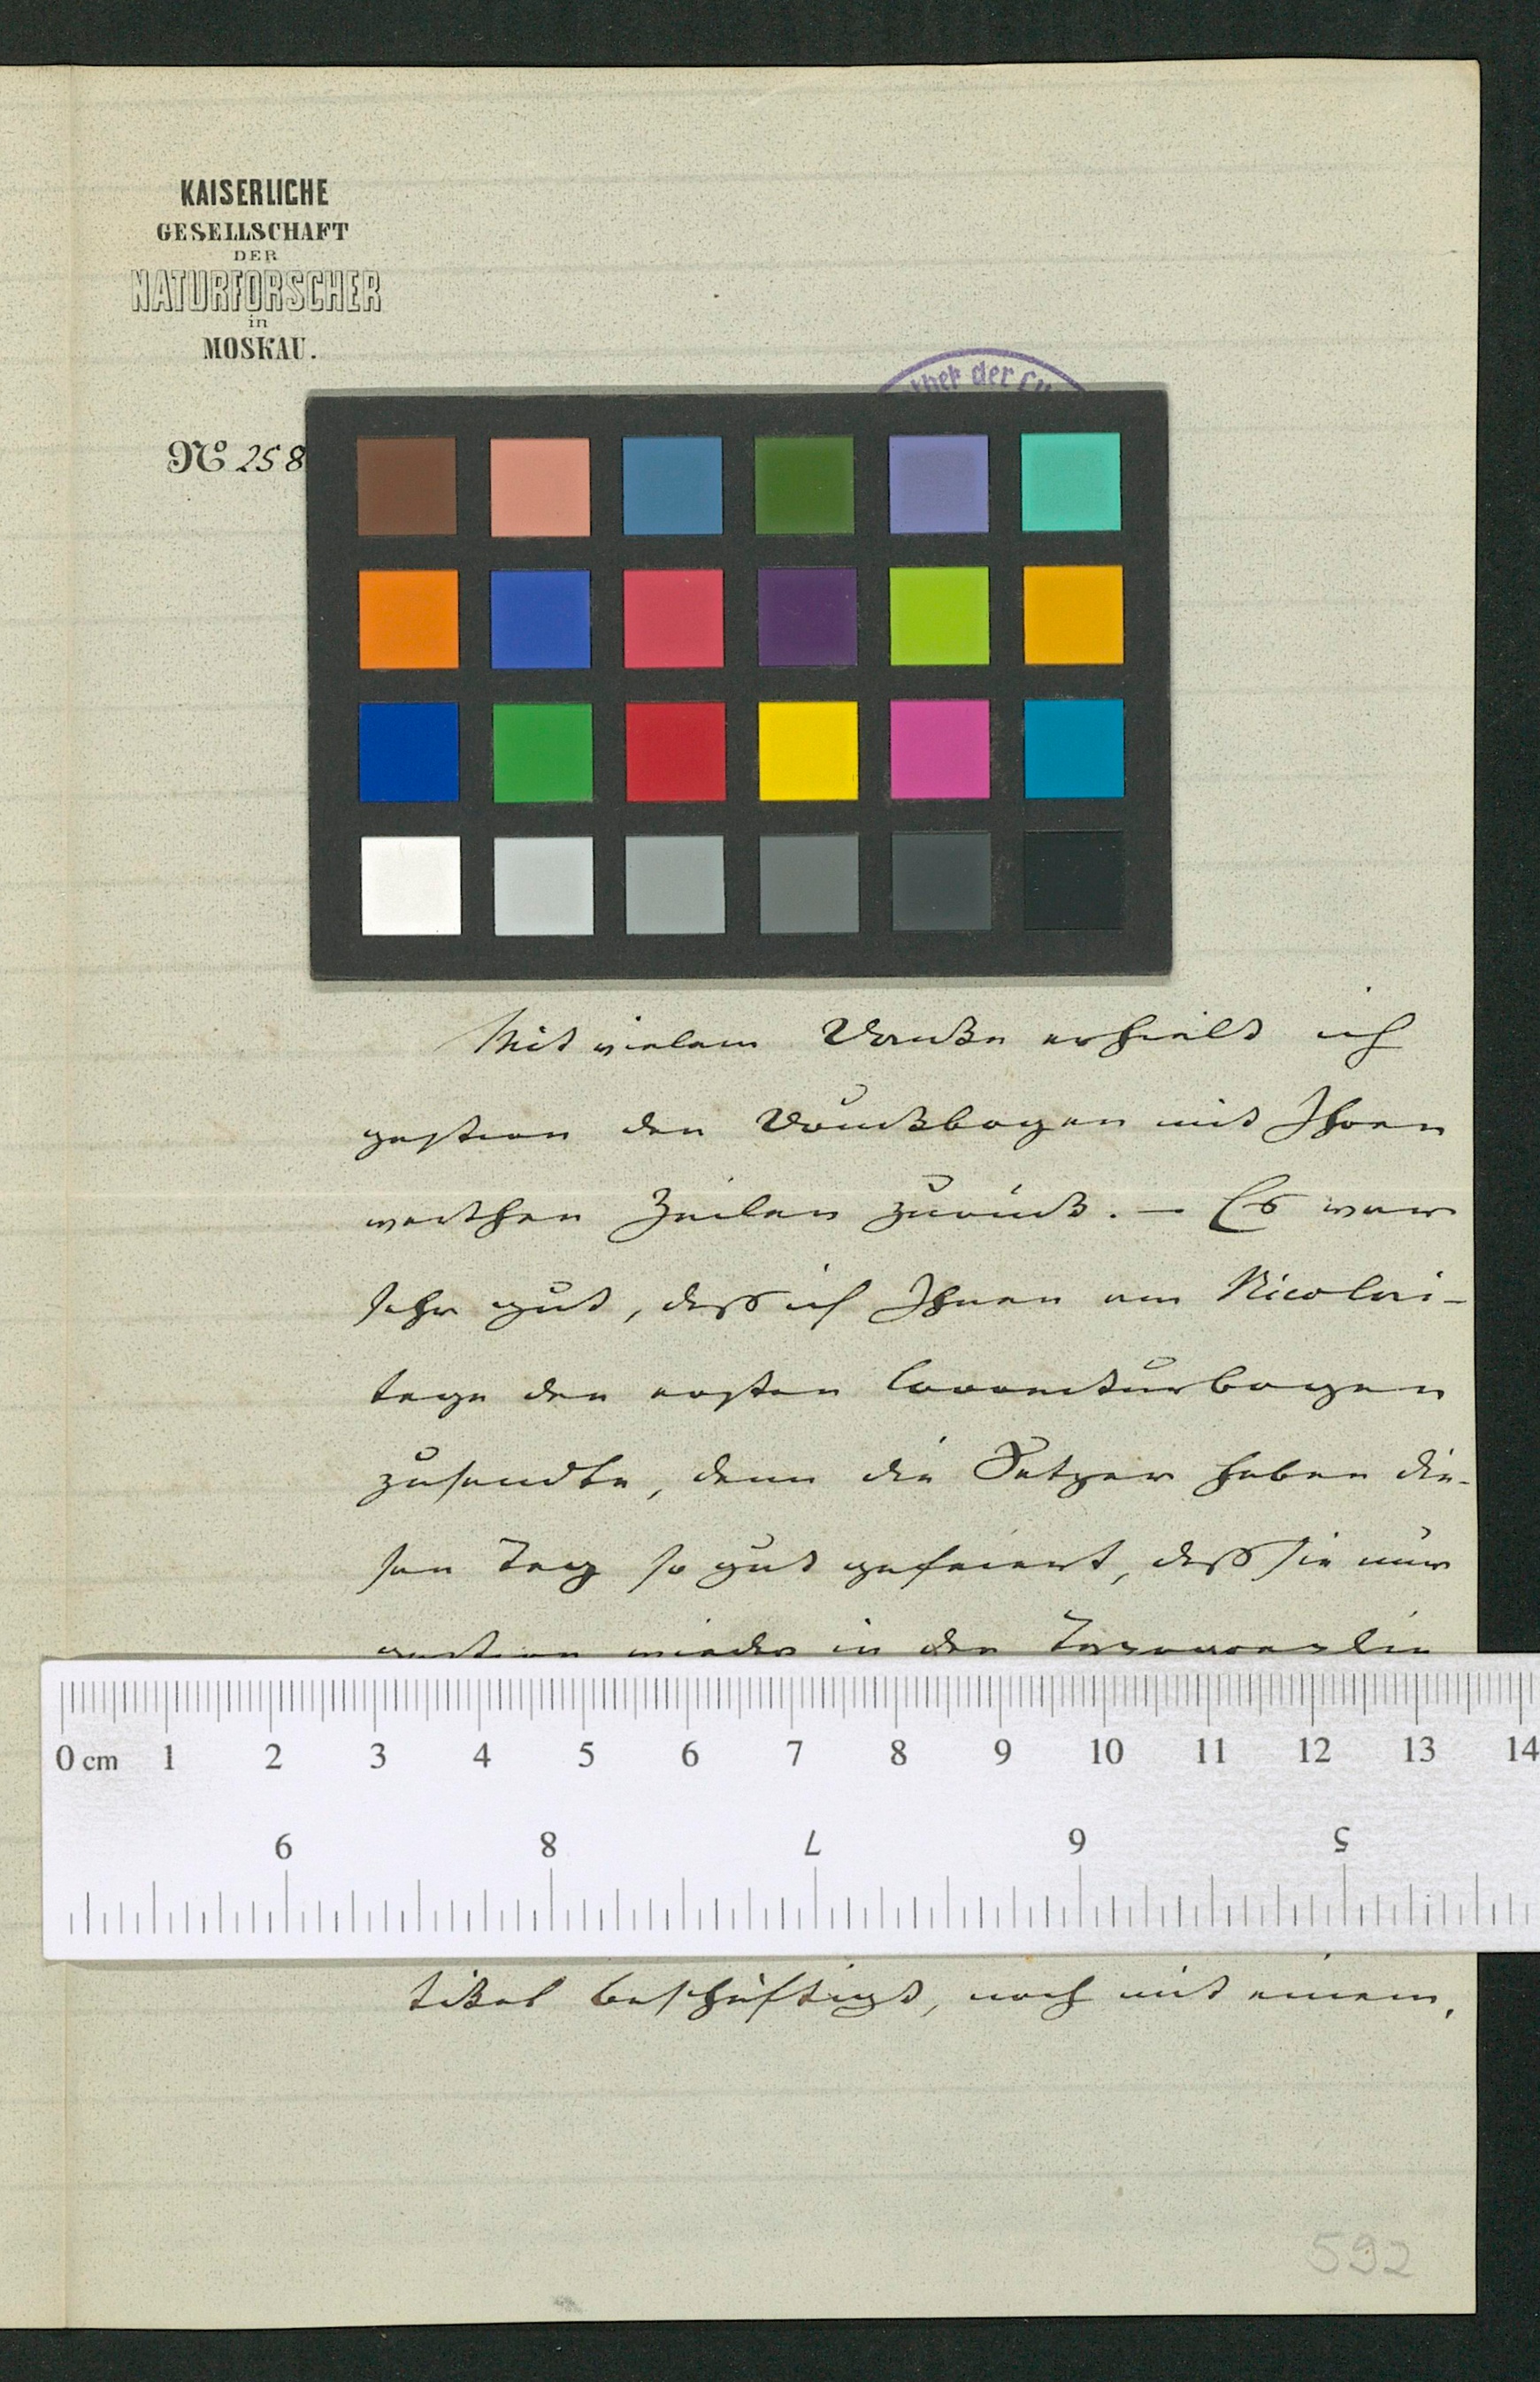 KAISERLICHE
GESELLSCHAFT
DER
NATURFORSCHER
in
MOSKAU.
der
№ 258
Mit vielem Danke erhielt ich
gestern den Druckbogen mit Ihren
werthen Zeilen zurück. — Es war
sehr gut, daß ich Ihnen am Nicolai-
tage den ersten Correcturbogen
zusandte, denn die Setzer haben die-
sen Tag so gut gefeiert, daß sie nur
gestern wieder in der
0 cm 1 2 3 4 5 6 7 8 9 10 11 12 13 14
9 8 7 6 5
tikel beschäftigt, noch mit einem,
592